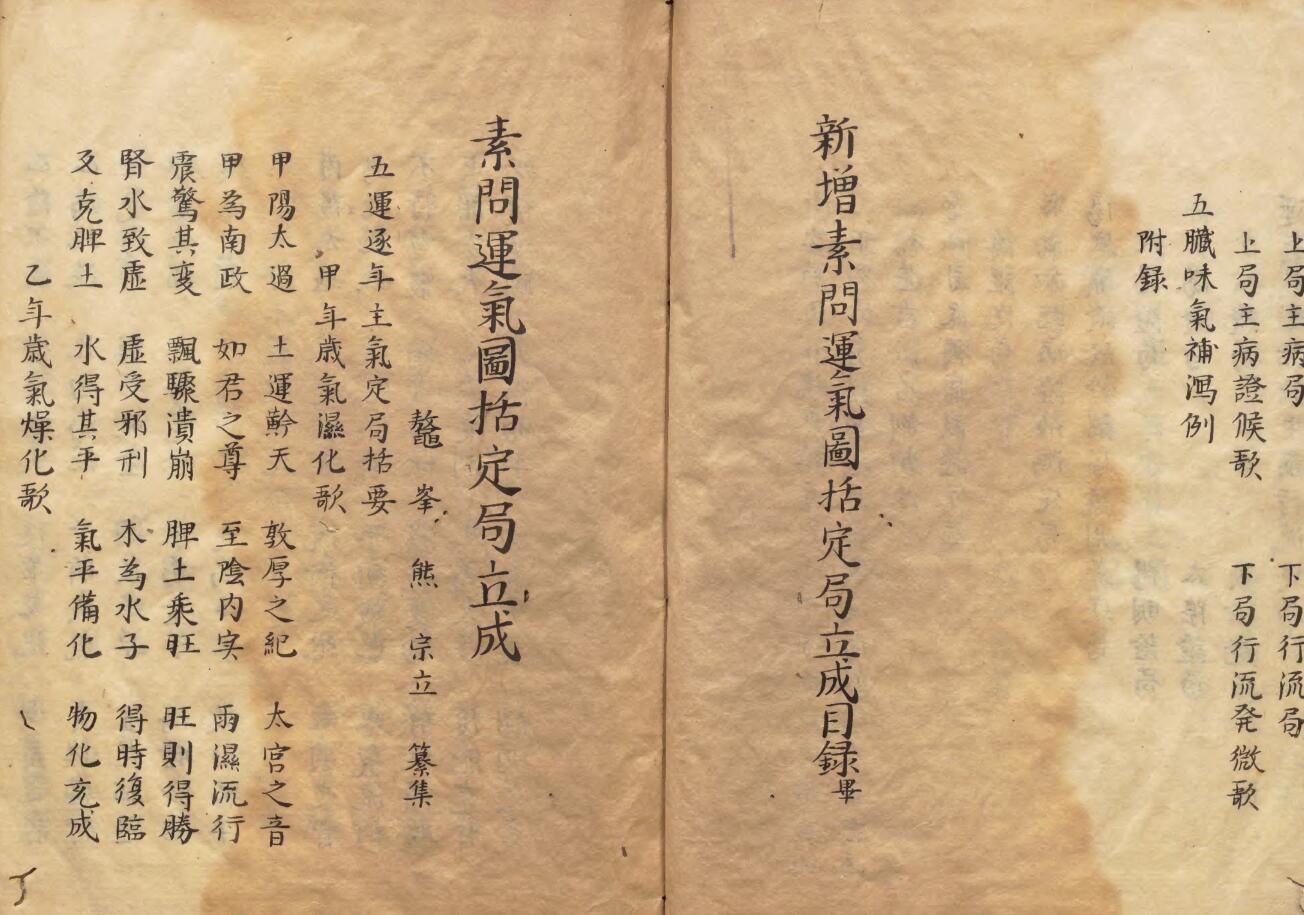 上局主病局 下局行流局
上局主病證候歌 下局行流発微歌
五臓味氣補瀉例
附録
新增素問運氣圖括定局立成目録畢
素問運氣圖括定局立成
鼇峯 熊宗立 纂集
五運逐年主氣定局括要
甲年歳氣濕化歌
甲陽太過 土運黅天 敦厚之紀 太宮之音
甲為南政 如君之尊 至陰内実 雨濕流行
震驚其变 飄驟潰崩 脾土乘旺 旺則得勝
腎水致虛 虛受邪刑 木為水子 得時復臨
反克脾土 水得其平 氣平備化 物化充成
乙年歳氣燥化歌